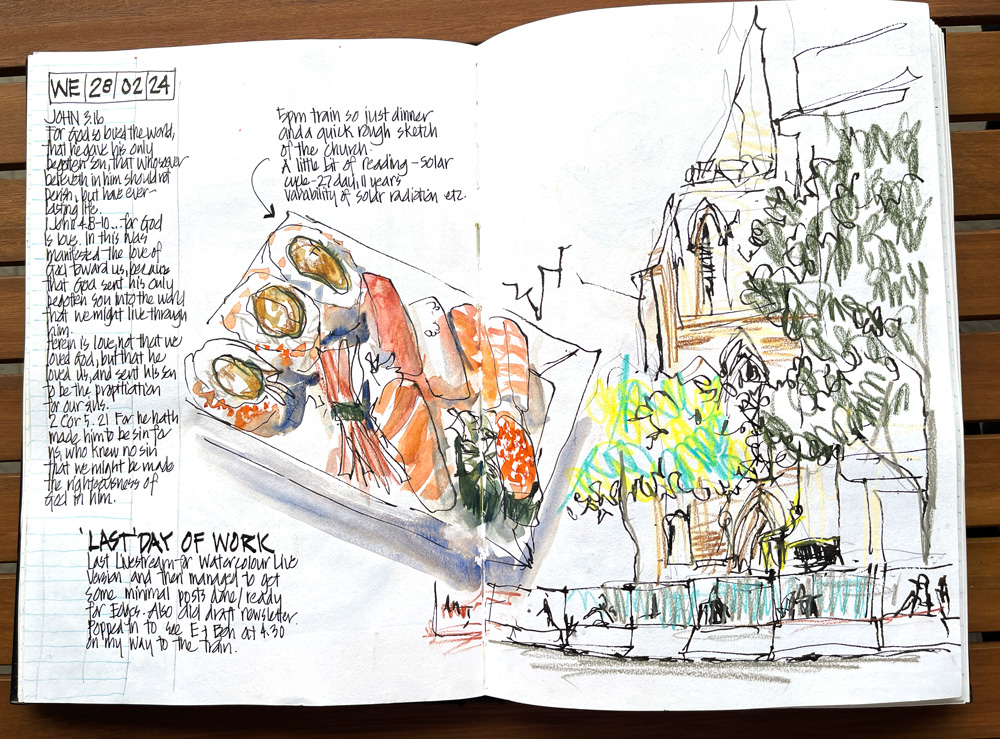 WE 28 02 24
JOHN 3.16
For God so loved the world,
that he gave his only
begotten son, that whosoever
believeth in him should not
perish, but have ever-
lasting life.
1 John 4.8-10... for God
is love. In this was
manifested the love of
God toward us, because
that God sent his only
begotten son into the world
that we might live through
him.
Herein is love, not that we
loved God, but that he
loved us, and sent his son
to be the propitiation
for our sins.
2 Cor 5. 21 For he hath
made him to be sin for
us, who knew no sin
that we might be made
the righteousness of
God in him.
5pm train so just dinner
and a quick rough sketch
of the church.
A little bit of reading - solar
cycle - 27 day, 11 years
variability of solar radiation etc.
'LAST' DAY OF WORK
Last Livestream for Watercolour Live
Version and then managed to get
some minimal posts done/ready
for Edges. Also did draft newsletter.
Popped in to see E + Beh at 4.30
on my way to the train.